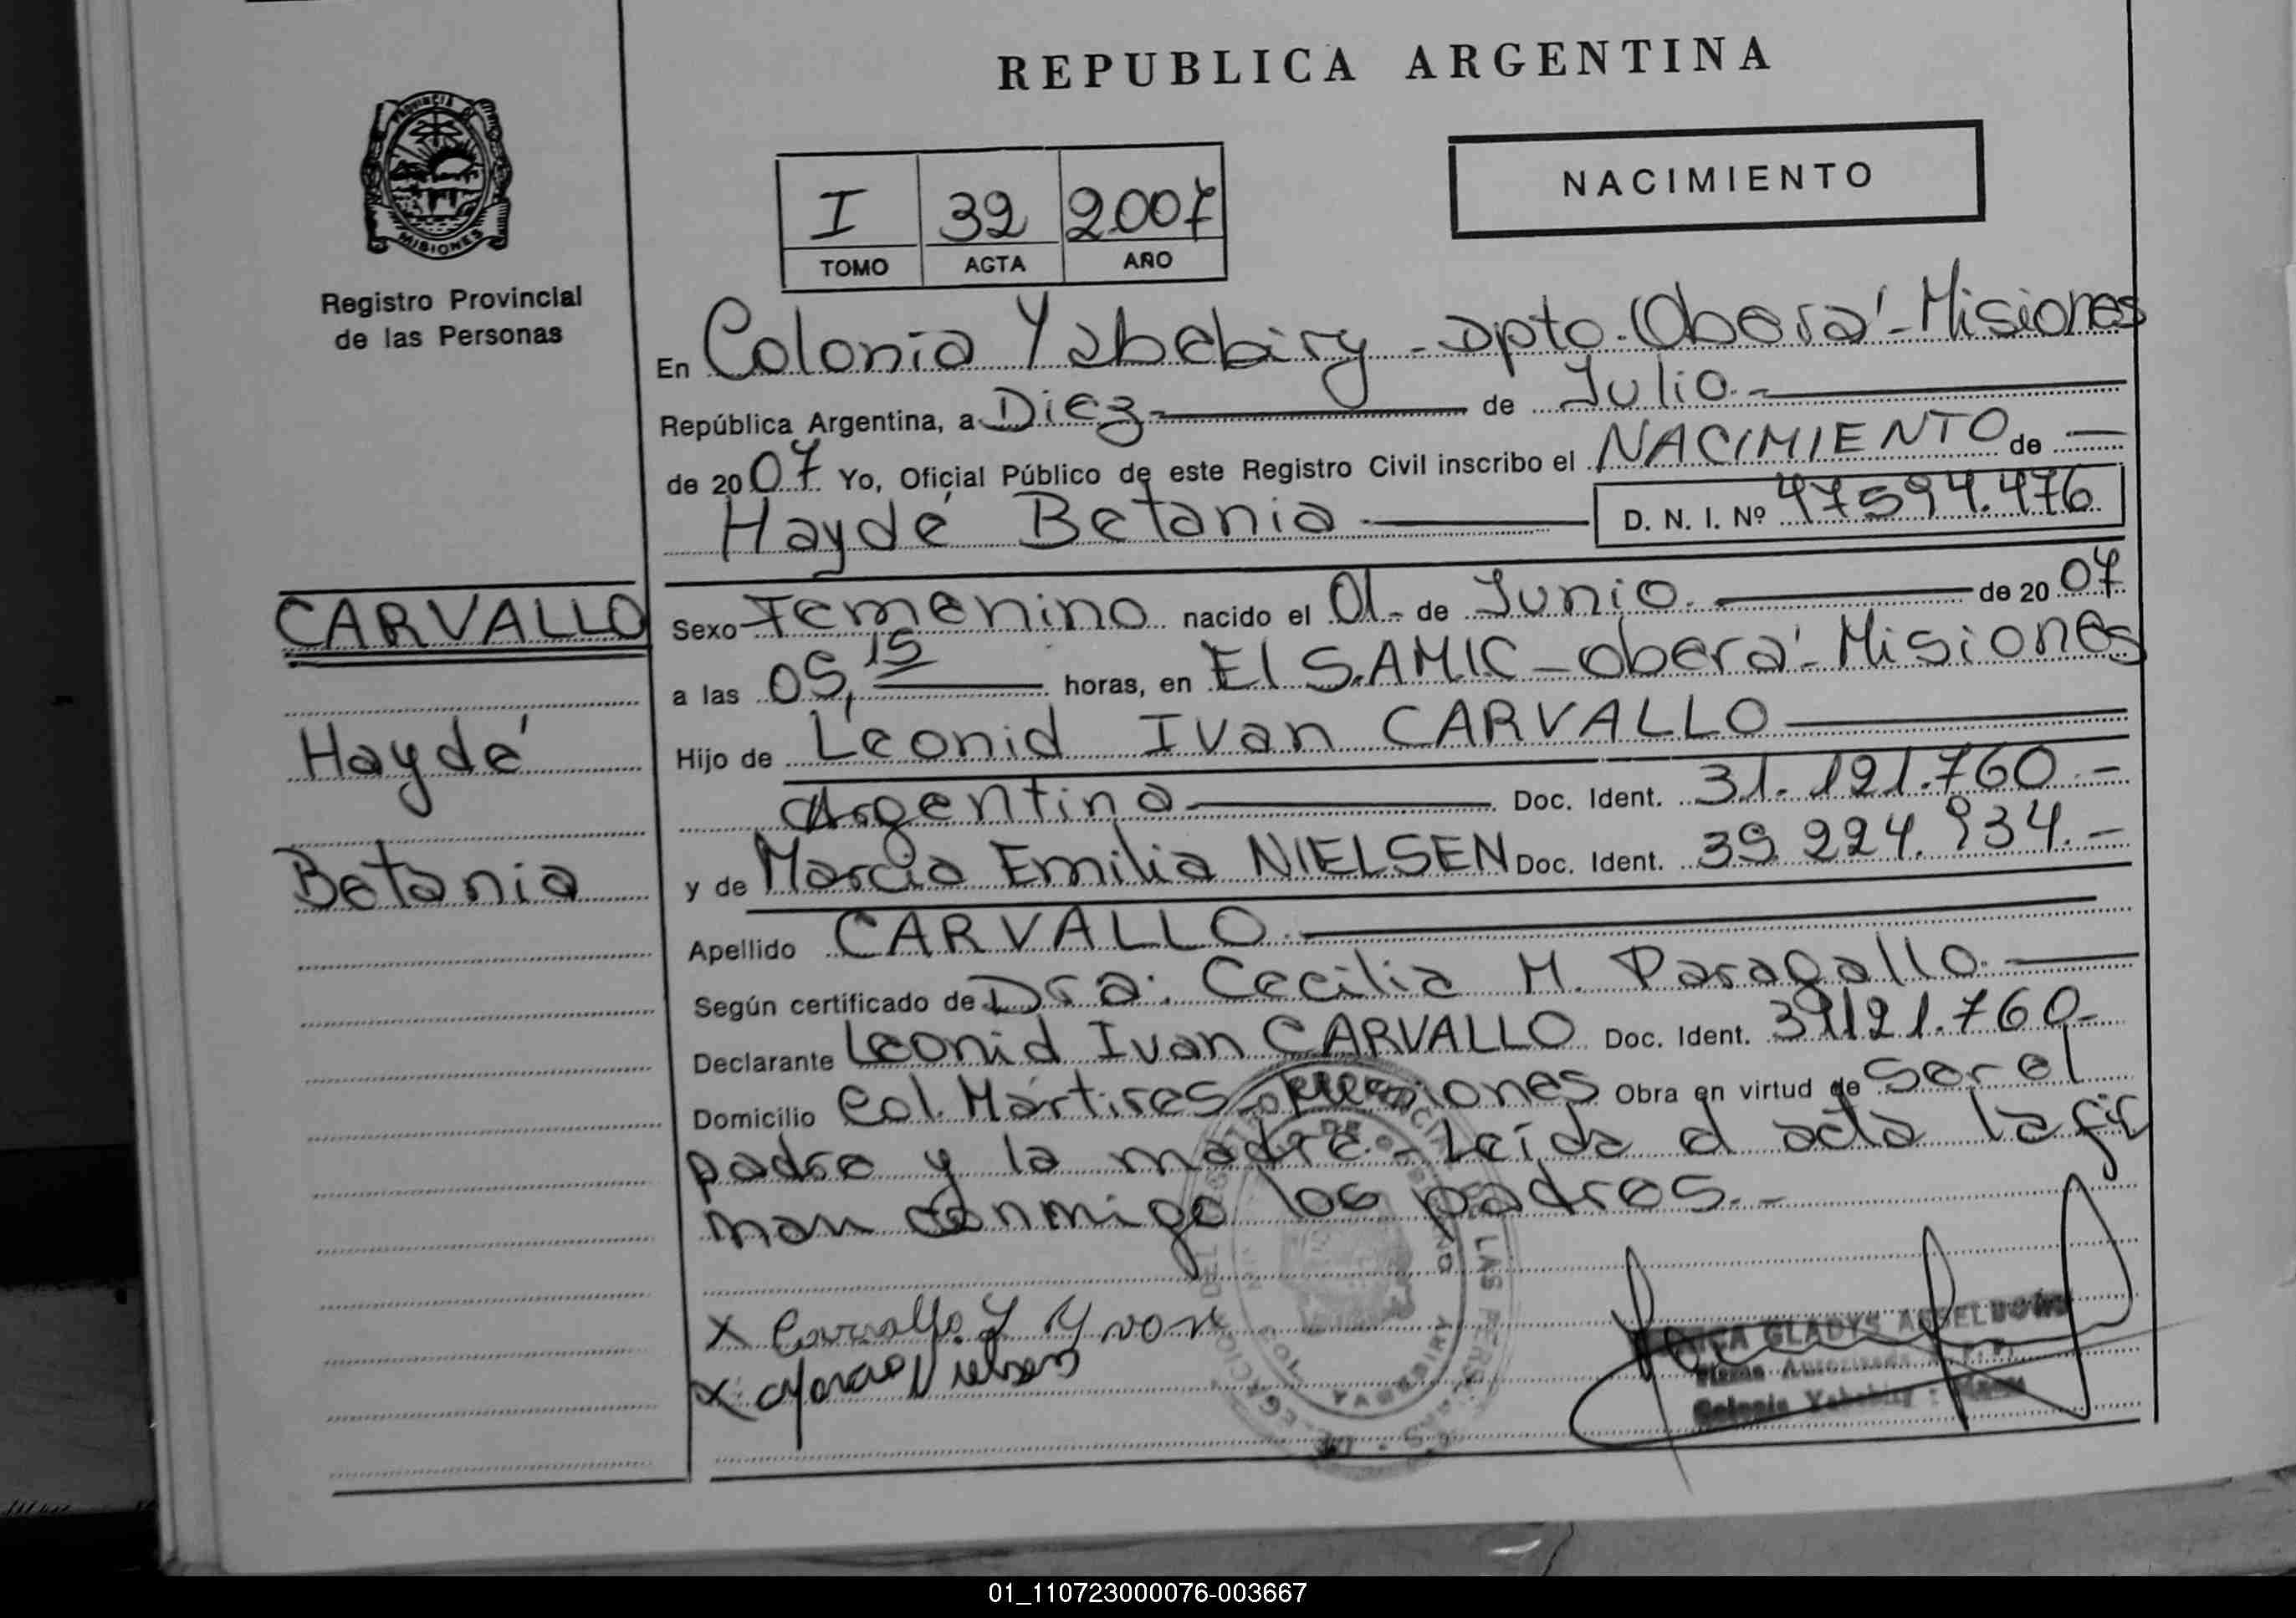 REPUBLICA ARGENTINA
PROVINCIA DE
MISIONES
Registro Provincial
de las Personas
NACIMIENTO
I 32 2007
TOMO ACTA AÑO
En Colonia Yabebiry - Dpto. Oberá - Misiones
República Argentina, a Diez de Julio.-
de 2007 Yo, Oficial Público de este Registro Civil inscribo el NACIMIENTO de
Haydé Betania D. N. I. Nº 47594.476
CARVALLO
Haydé
Betania
Sexo Femenino nacido el 01- de Junio. de 2007
a las 05,15 horas, en El S.AM.I.C - Oberá - Misiones
Hijo de Leonid Ivan CARVALLO
Argentino Doc. Ident. 31.121.760.-
y de Marcia Emilia NIELSEN Doc. Ident. 39 224.934.-
Apellido CARVALLO.
Según certificado de Dra. Cecilia M. Paragallo.
Declarante Leonid Ivan CARVALLO Doc. Ident. 121.760.-
Domicilio Col. Mártires Misiones Obra en virtud de Ser el
padre y la madre.- Leída el acta la fir
man conmigo los padres.-
X Carvallo Yvon
X Marcia Nielsen
GLADYS
Colonia Yabebiry
COL. YABEBIRY
01_110723000076-003667